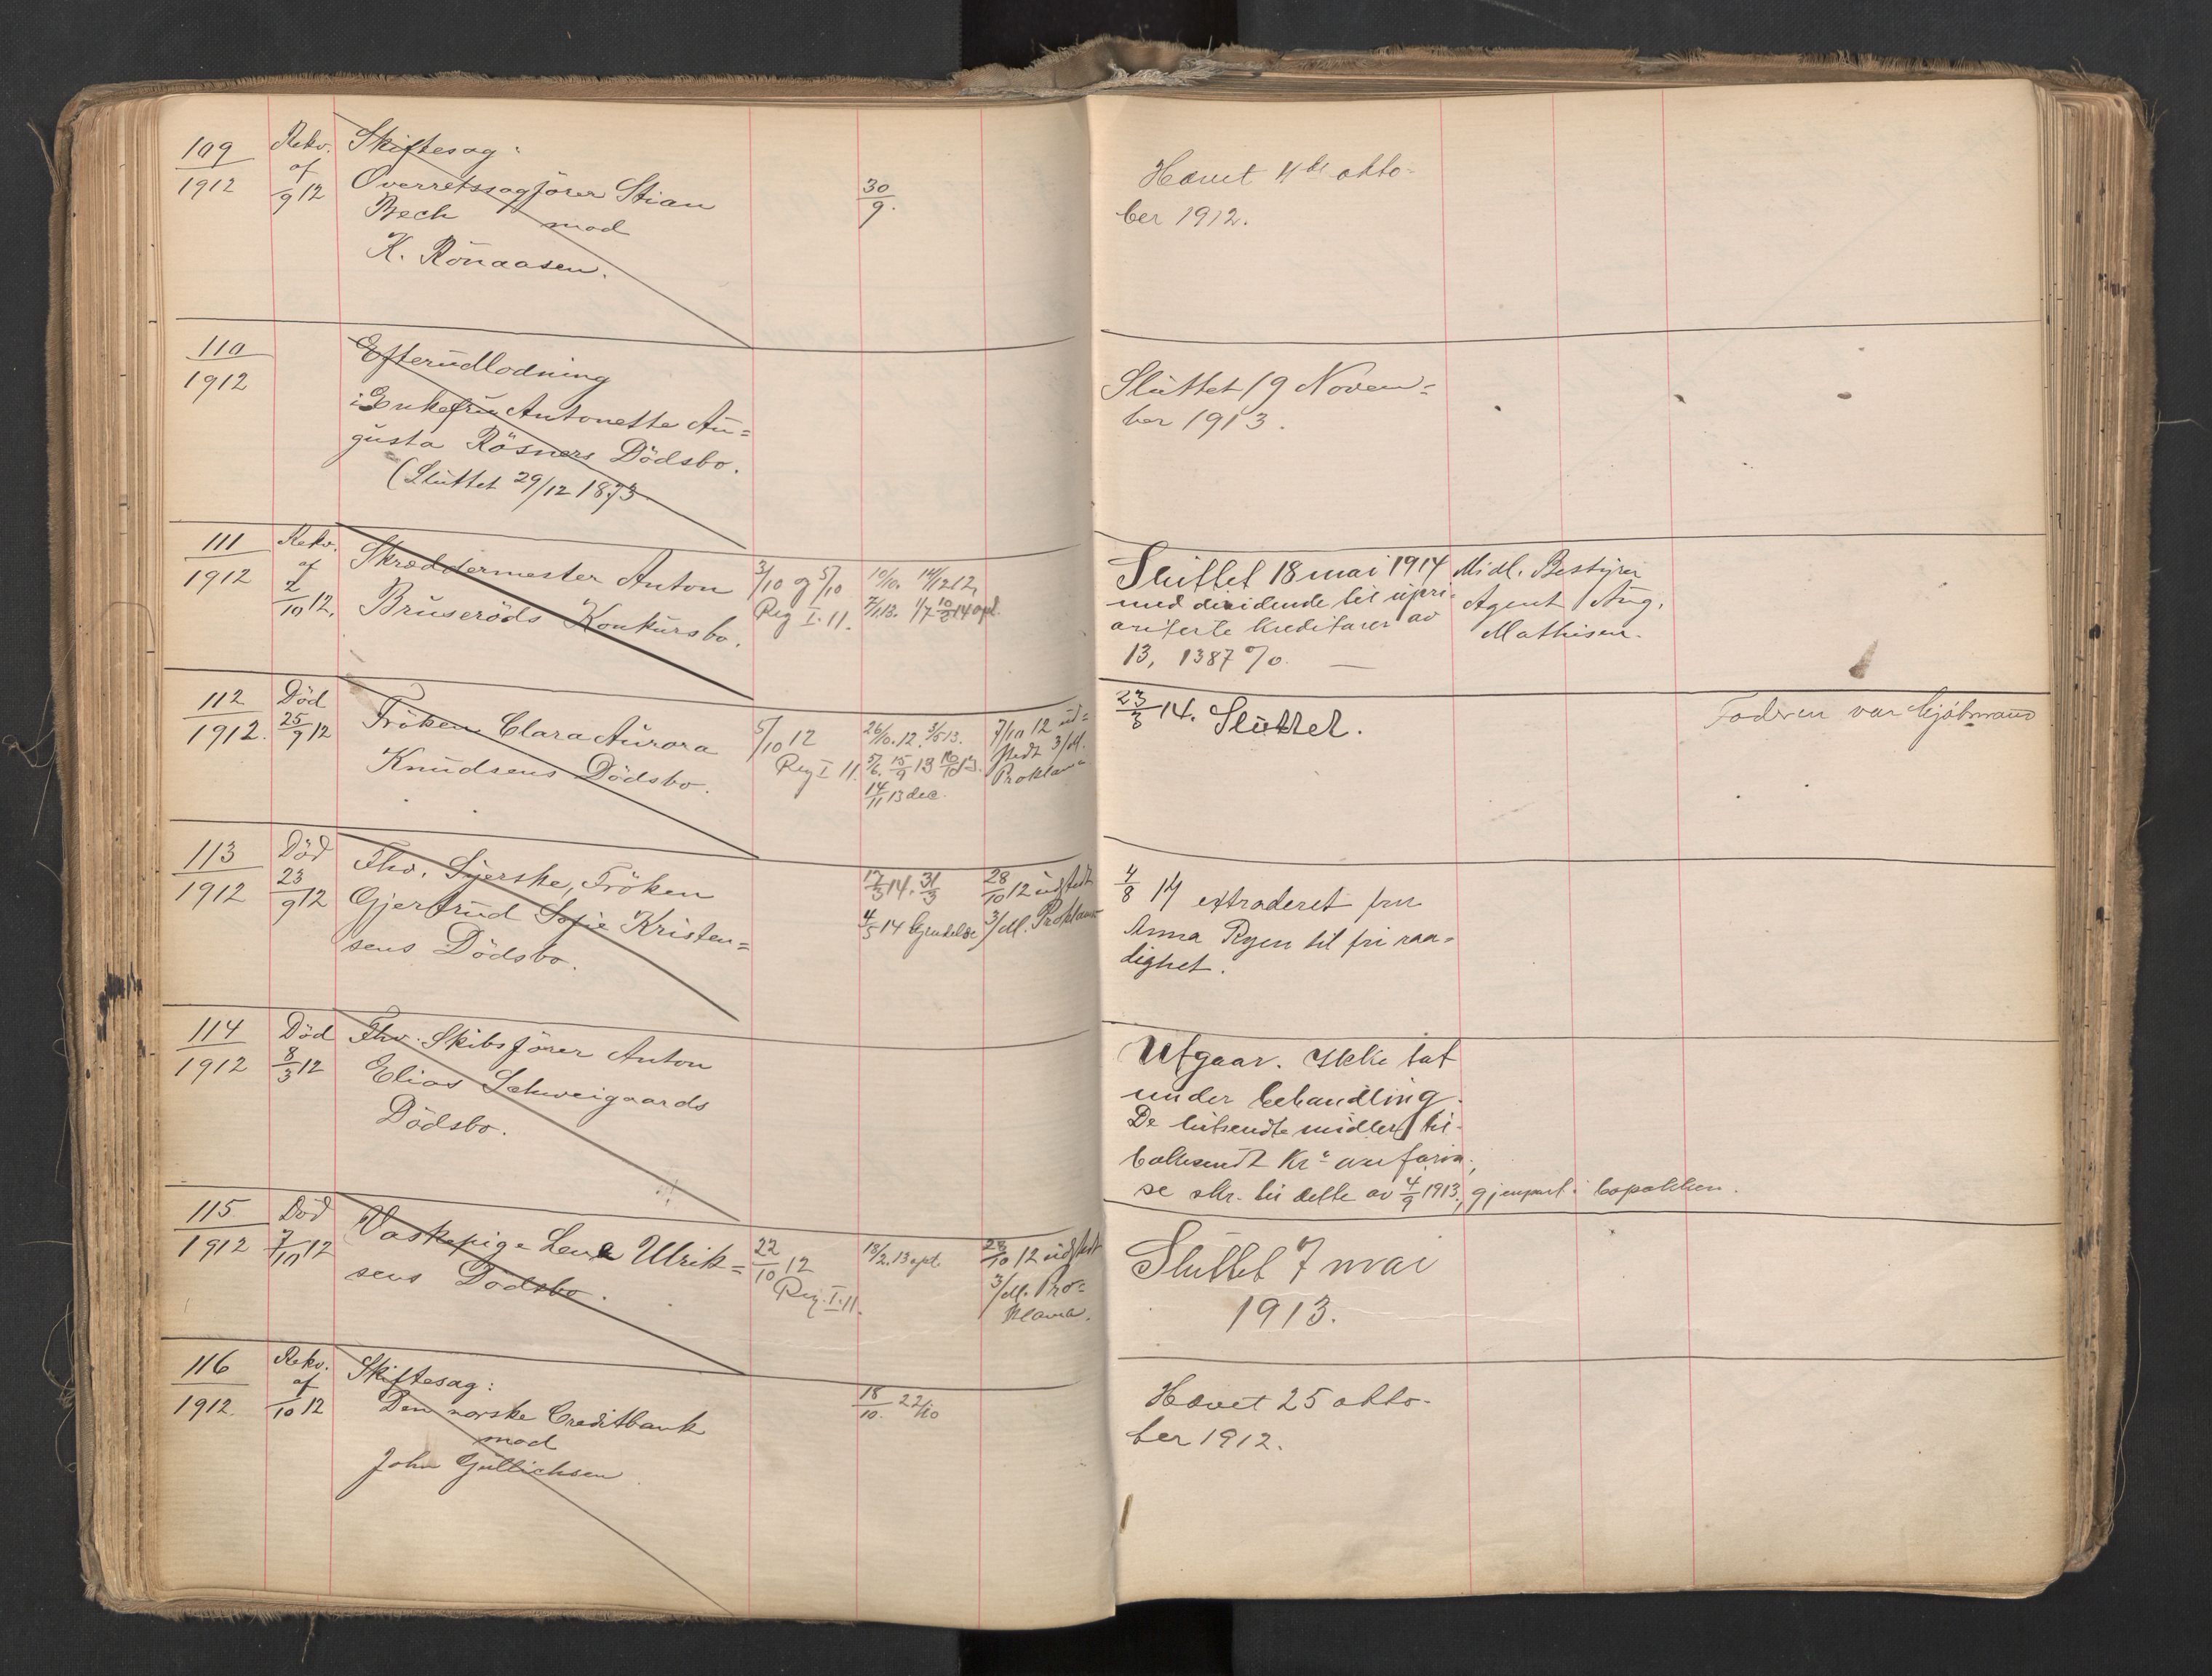 109
1912
Rekv.
af
/9 12
Skiftesag:
Overretssagfører Stian
Bech mod
K. Rönaasen.
30/9.
Hævet 4de okto-
ber 1912.
110
1912
Efterudlodning
i Enkefru Antonette Au=
gusta Rösners Dödsbo.
(Sluttet 29/12 1873
Sluttet 19 Novem=
ber 1913.
111
1912
Rekv.
af
2/10 12.
Skræddermester Anton
Bruseröds Konkursbo.
3/10 og 5/10
Reg I. 11.
Sluttet 18 mai 1914
med dividende til upri-
oriterte kreditorer av
13, 1387 %. —
Midl. Bestyrer
Agent Aug.
Mathisen.
112
1912.
Död
25/9 12
Fröken Clara Aurora
Knudsens Dödsbo.
5/10 12
Reg I 11.
26/10. 12. 3/5 13.
5/6. 15/9 13
14/11 13 dec.
7/10 12 ud=
stedt 3/M.
Proklama
23/3 14. Sluttet.
Faderen var Kjöbmand
113
1912
Död
23/9 12
Fhv. Syerske, Fröken
Gjertrud Sofie Kristen=
sens Dödsbo.
17/3 14. 31/3
4/5 14 Kjendelse
28/10 12 udstedt
3/M. Proklama
4/8 14 extraderet fru
Anna Ryen til fri raa=
dighet.
114
1912
Död
8/3 12
Fhv. Skibsfører Anton
Elias Schweigaards
Dödsbo.
Utgaar. Ikke tat
under behandling.
De hitsendte midler til-
bakesendt Kr.a
se skr. til dette av 4/9 1913, gjenpart i bopakken.
115
1912
Död
7/10 12
Vaskepige Lena Ulrik=
sens Dödsbo.
22/10 12
Reg. I. 11.
13/2. 13 opl.
28/10 12 udstedt
3/M. Pro=
klama.
Sluttet 7 mai
1913.
116
1912.
Rekv.
af
/10 12
Skiftesag:
Den norske Creditbank
mod
John Gullichsen
18/10. 22/10
Hævet 25 okto-
ber 1912.